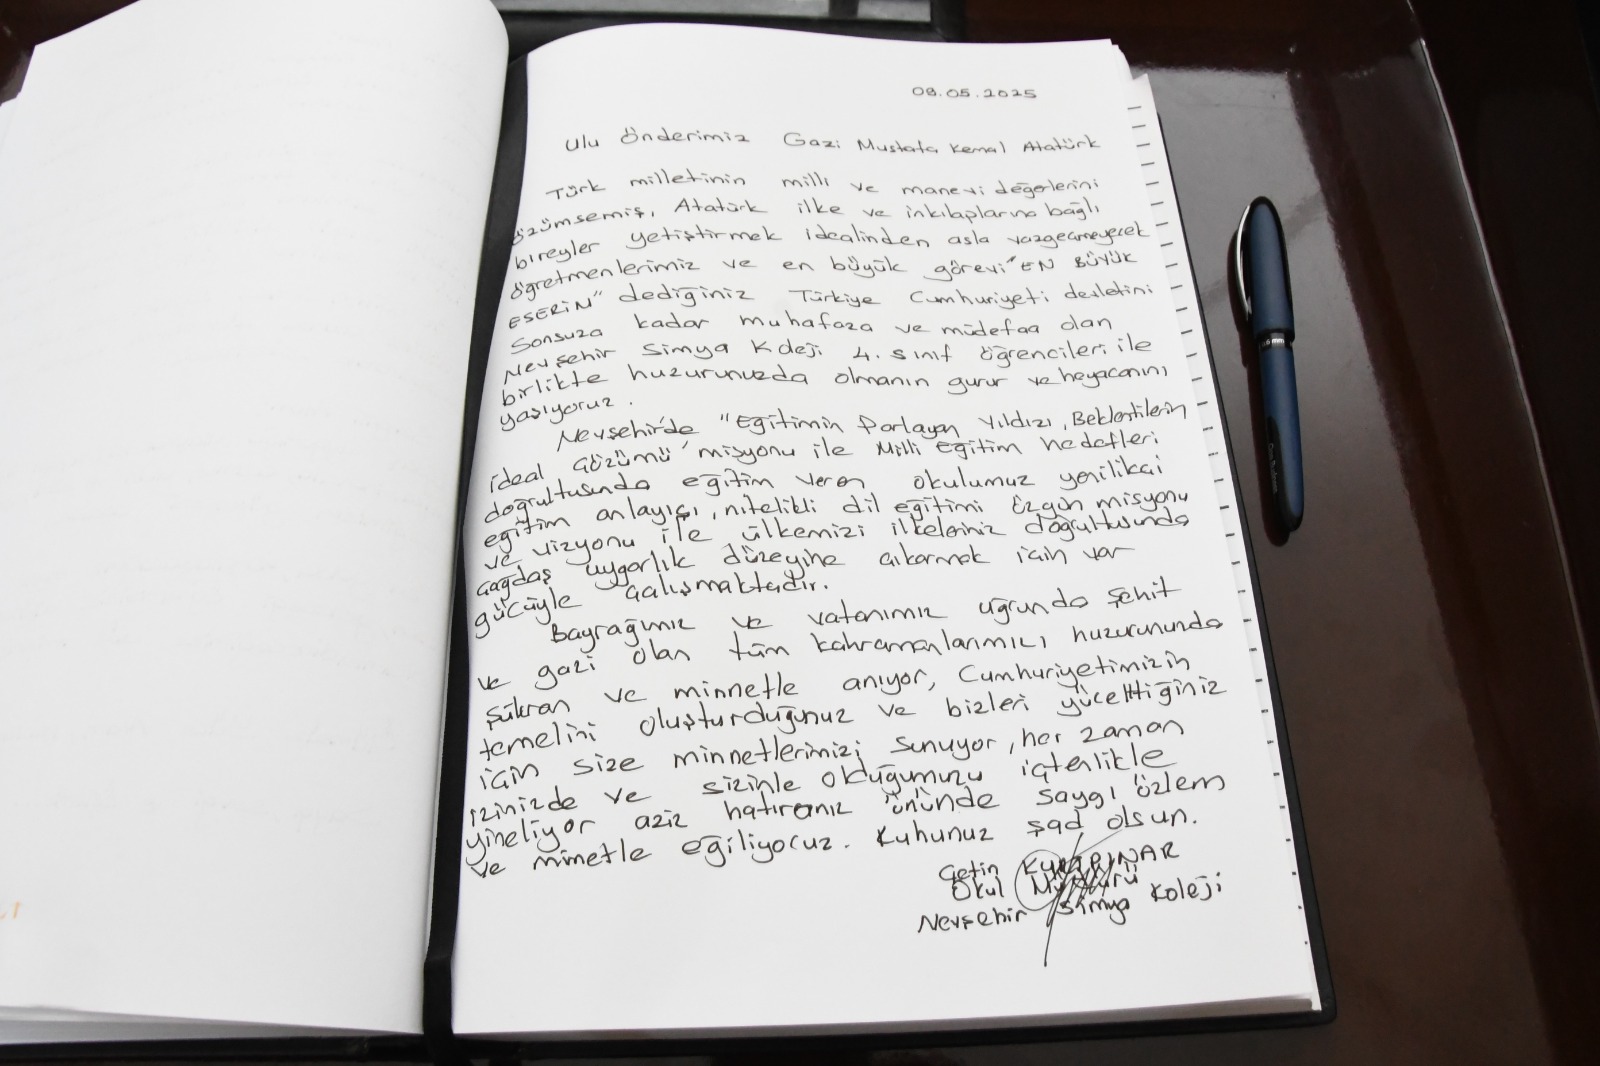 08.05.2025
Ulu Önderimiz Gazi Mustafa Kemal Atatürk
Türk milletinin milli ve manevi değerlerini
özümsemiş, Atatürk ilke ve inkılaplarına bağlı
bireyler yetiştirmek idealinden asla vazgeçmeyecek
öğretmenlerimiz ve en büyük görevi "EN BÜYÜK
ESERİN" dediğiniz Türkiye Cumhuriyeti devletini
Sonsuza kadar muhafaza ve müdefaa olan
Nevşehir Simya Koleji 4. sınıf öğrencileri ile
birlikte huzurunuzda olmanın gurur ve heyacanını
yaşıyoruz.
Nevşehir'de "Eğitimin Parlayan Yıldızı, Beklentilerin
ideal Çözümü" misyonu ile Milli Eğitim hedefleri
doğrultusunda eğitim veren okulumuz yenilikçi
eğitim anlayışı, nitelikli dil eğitimi özgün misyonu
ve vizyonu ile ülkemizi ilkeleriniz doğrultusunda
çağdaş uygarlık düzeyine çıkarmak için var
gücüyle çalışmaktadır.
Bayrağımız ve vatanımız uğrunda şehit
ve gazi olan tüm kahramanlarımızı huzurununda
şükran ve minnetle anıyor, Cumhuriyetimizin
temelini oluşturduğunuz ve bizleri yücelttiğiniz
için size minnetlerimizi sunuyor, her zaman
izinizde ve sizinle olduğumuzu içtenlikle
yineliyor aziz hatıranız önünde saygı özlem
ve minnetle eğiliyoruz. Ruhunuz şad olsun.
Çetin KURAPINAR
Okul Müdürü
Nevşehir Simya Koleji